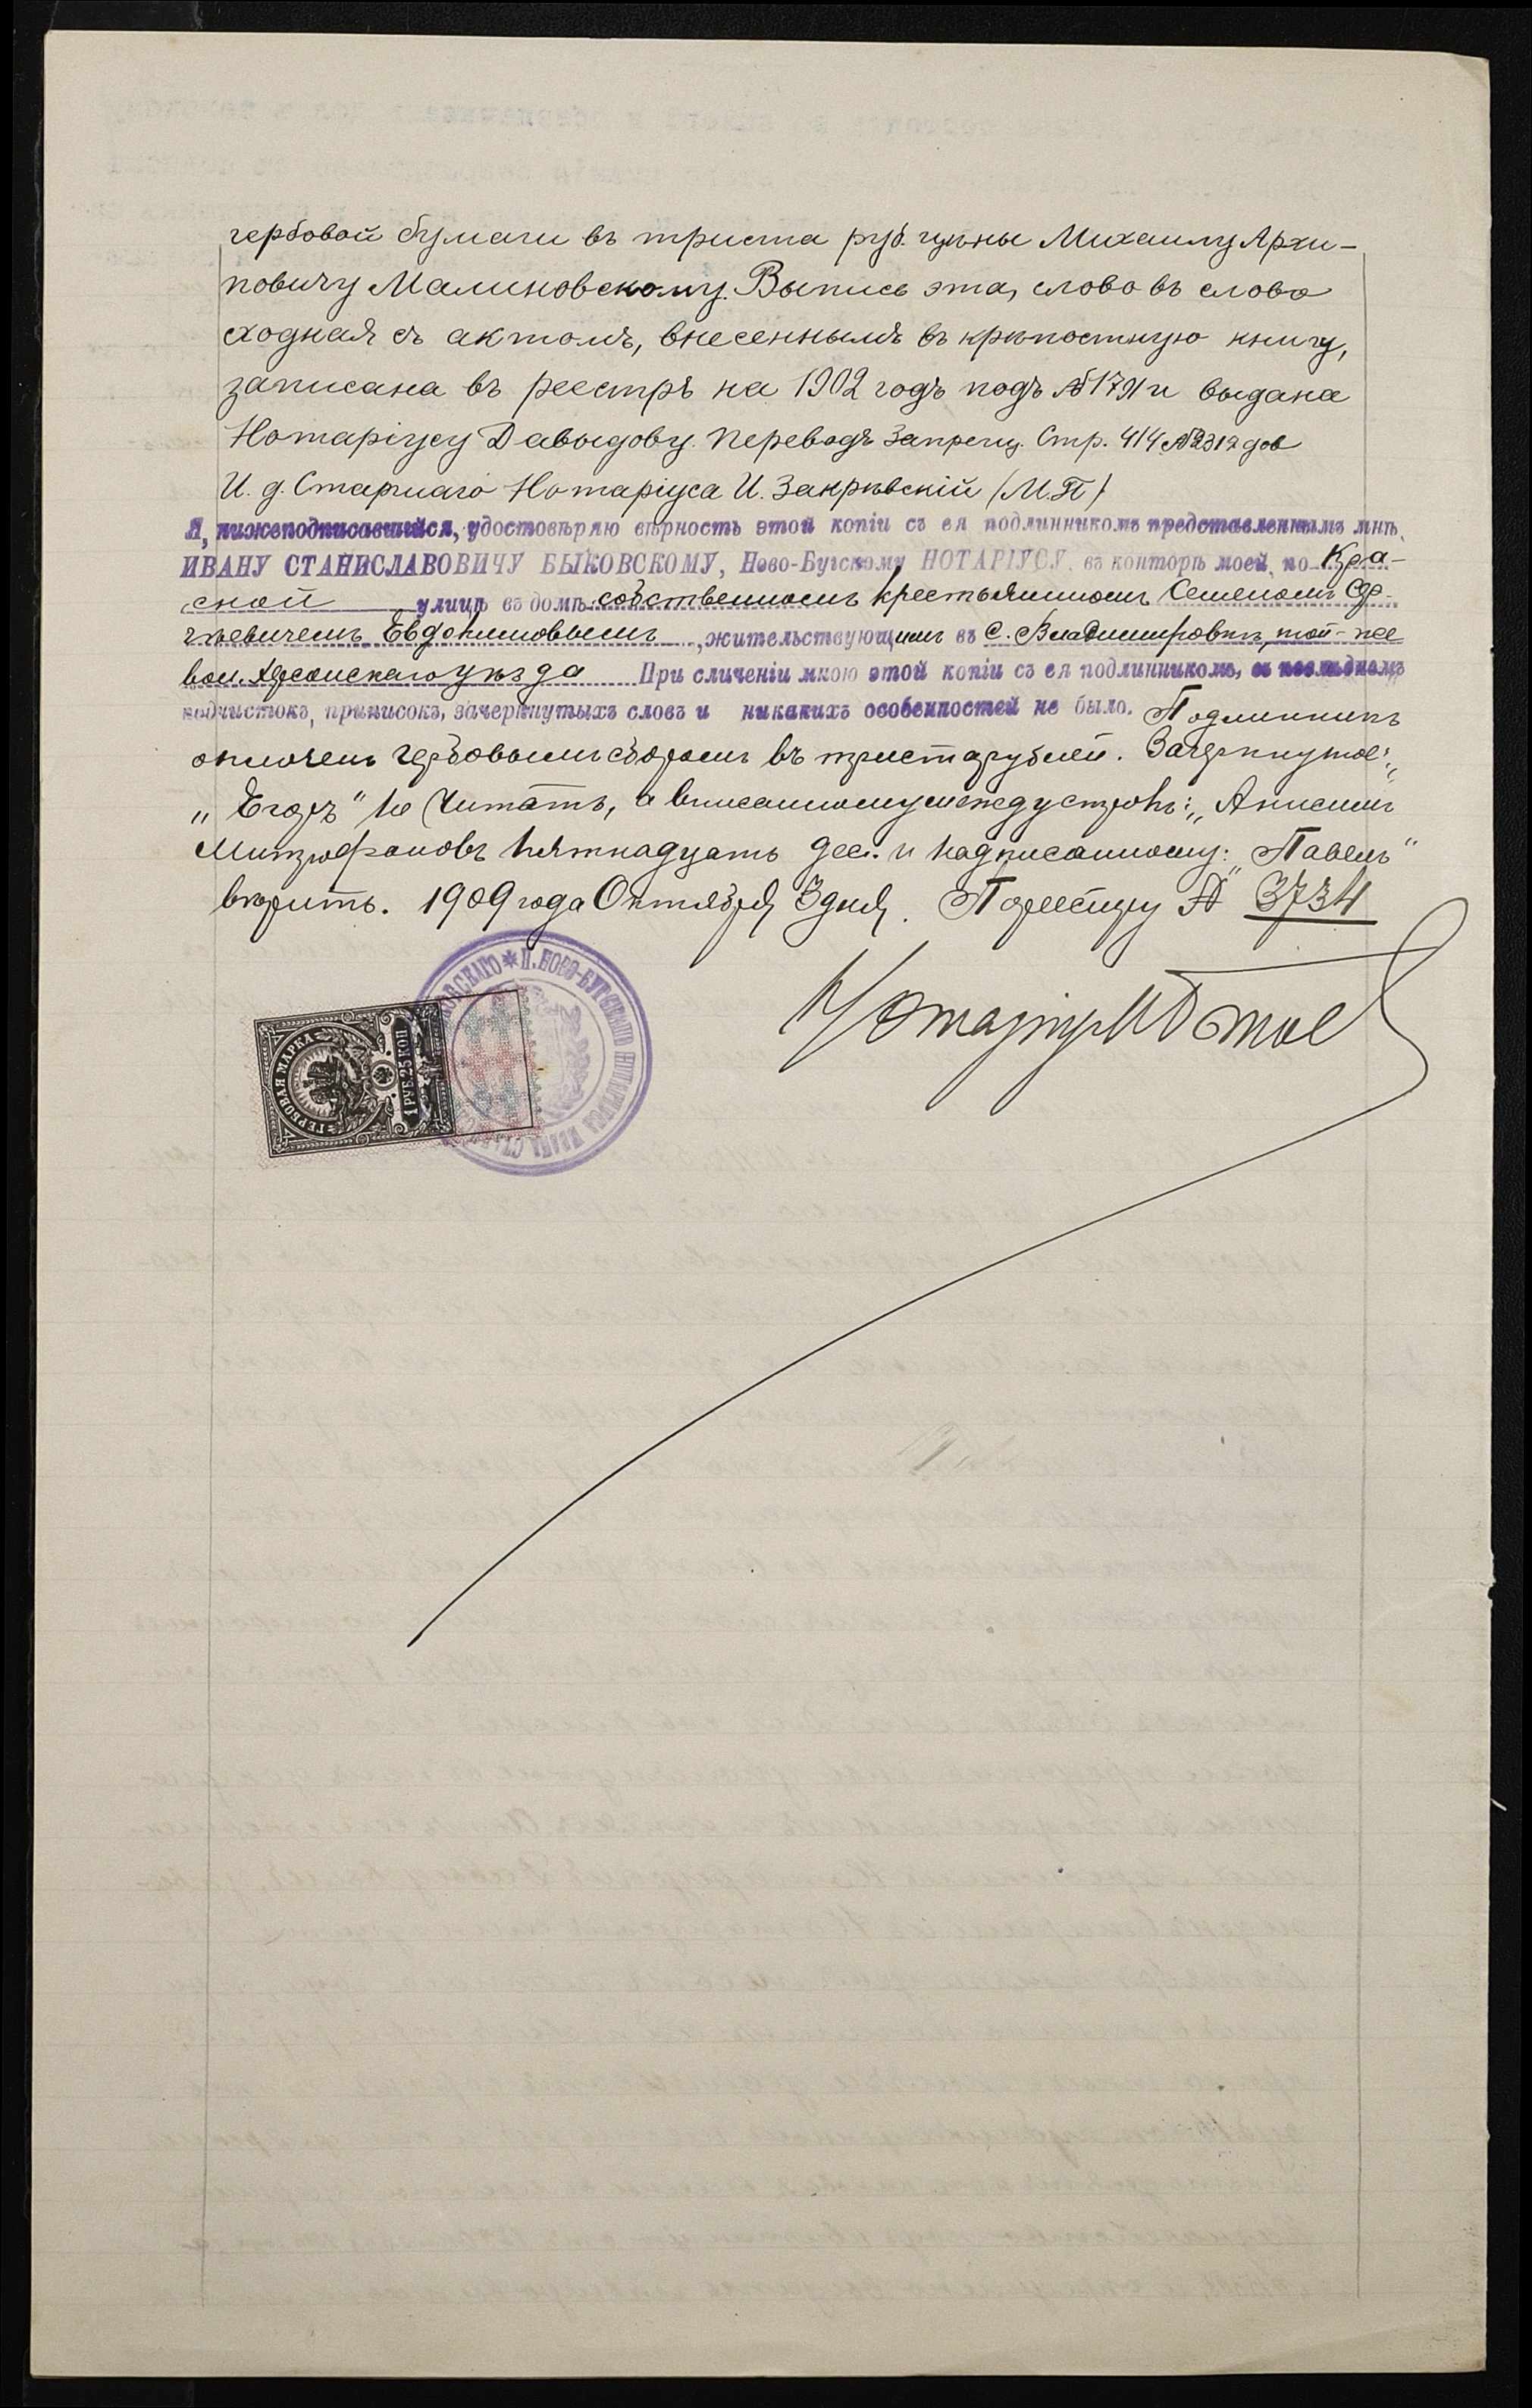 гербовой бумаги въ триста руб. цѣны Михаилу Архи-
повичу Малиновскому. Выпись эта, слово въ слово
сходная съ актомъ, внесеннымъ въ крѣпостную книгу,
записана въ реестръ на 1902 годъ подъ № 1791 и выдана
Нотаріусу Давыдову. Переводъ Запрещ. Стр. 414 № 2312
И. д. Старшаго Нотаріуса И. Закрѣвскій (М.П)
Я, нижеподписавшійся, удостовѣряю вѣрность этой копіи съ ея подлинникомъ представленнымъ мнѣ,
ИВАНУ СТАНИСЛАВОВИЧУ БЫКОВСКОМУ, Ново-Бугскому НОТАРІУСУ, въ конторѣ моей, по Кра-
сной улицѣ въ домѣ собственномъ крестьяниномъ Семеномъ Сер-
гѣевичемъ Евдокимовымъ, жительствующимъ въ с. Владимировкѣ, той-же
вол. Херсонскаго уѣзда При сличеніи мною этой копіи съ ея подлинникомъ, въ послѣднемъ
подчистокъ, приписокъ, зачеркнутыхъ словъ и никакихъ особенностей не было. Подлинникъ
оплоченъ гербовымъ сборомъ въ триста рублей. Зачеркнутое:
„Егоръ" не читать, а вписанному между строкъ: „Анисимъ
Митрофановъ пятнадцать дес. и надписанному: „Павелъ"
вѣрить. 1909 года Октября 3 дня. По реестру № 3734
Нотаріусъ
ГЕРБОВАЯ МАРКА
1 РУБ. 25 КОП.
* П. НОВО-БУГСКАГО НОТАРІУСА ИВАНА